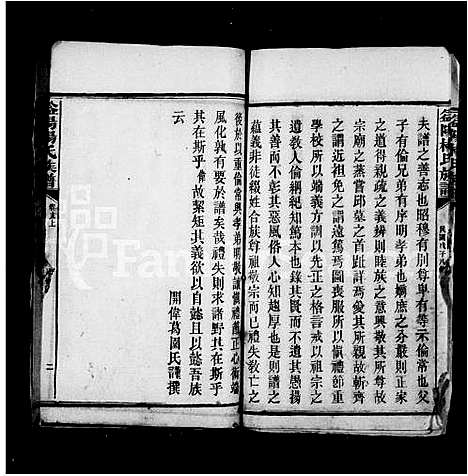 益陽楊氏族譜
夫譜之善志也昭穆有別尊卑有等示倫常也父
子有倫兄弟有序明孝弟也嫡庶之分嚴則正家
之道得親疏之義辨則睦族之意興敬其尊斯敬
宗廟之蒸嘗邱墓之首趾詳焉愛其所親故斬齊
之謂近祖免之謂遠篤焉圖喪服所以愼禮節重
學校所以端義方訓以先正之格言戒以祖宗之
遺敎人倫綱紀知篤本也錄其賢而不遺其愚揚
其善而不彰其惡風俗人心知趨厚也是則譜之
蘊義非徒綴姓合族尊祖敬宗而已禮失敎亡之
後於以重倫常興孝弟明
風化孰有要於譜矣哉禮失則求諸野其在斯乎
其在斯乎故絜矩其義欲以自毖且以毖吾族
云
開偉葛園氏謹撰
益陽楊氏族譜
卷五上
二